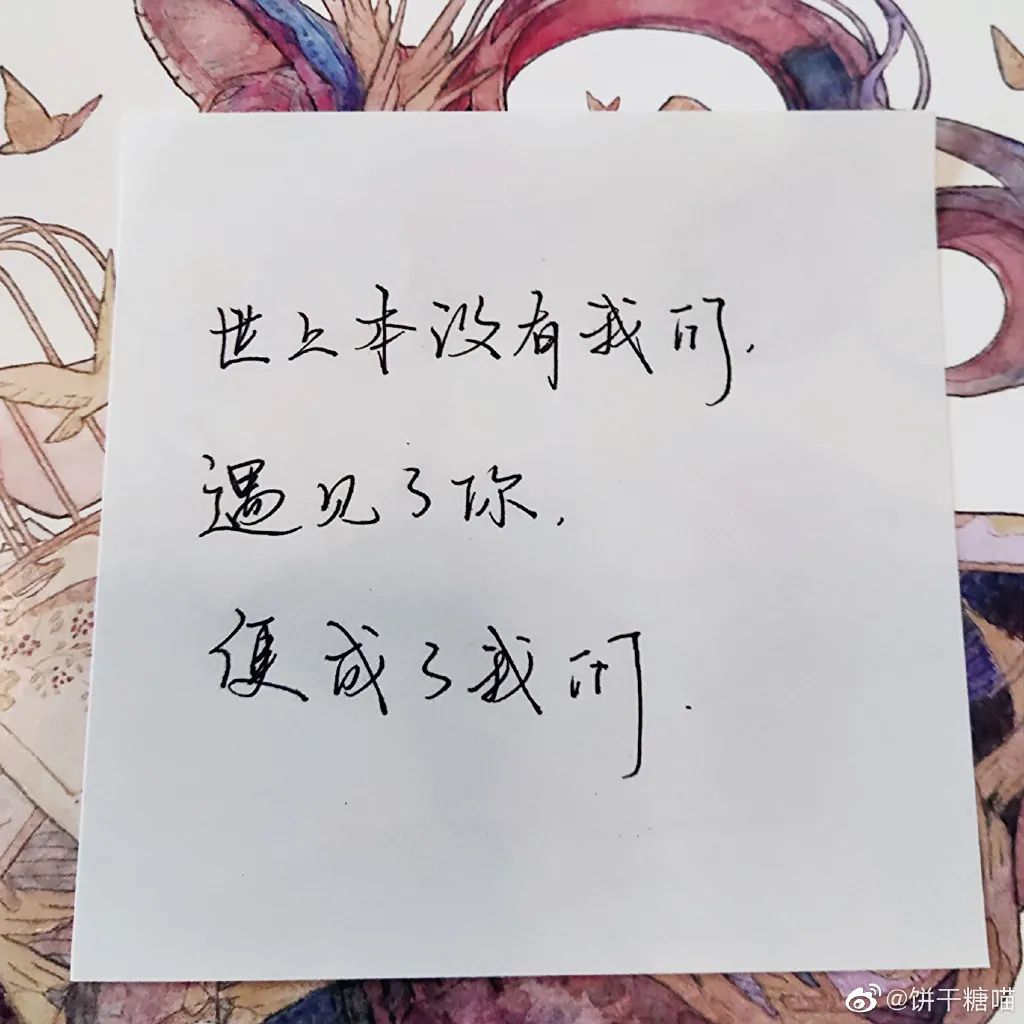 世上本没有我们.
遇见了你,
便成了我们.
@饼干糖喵